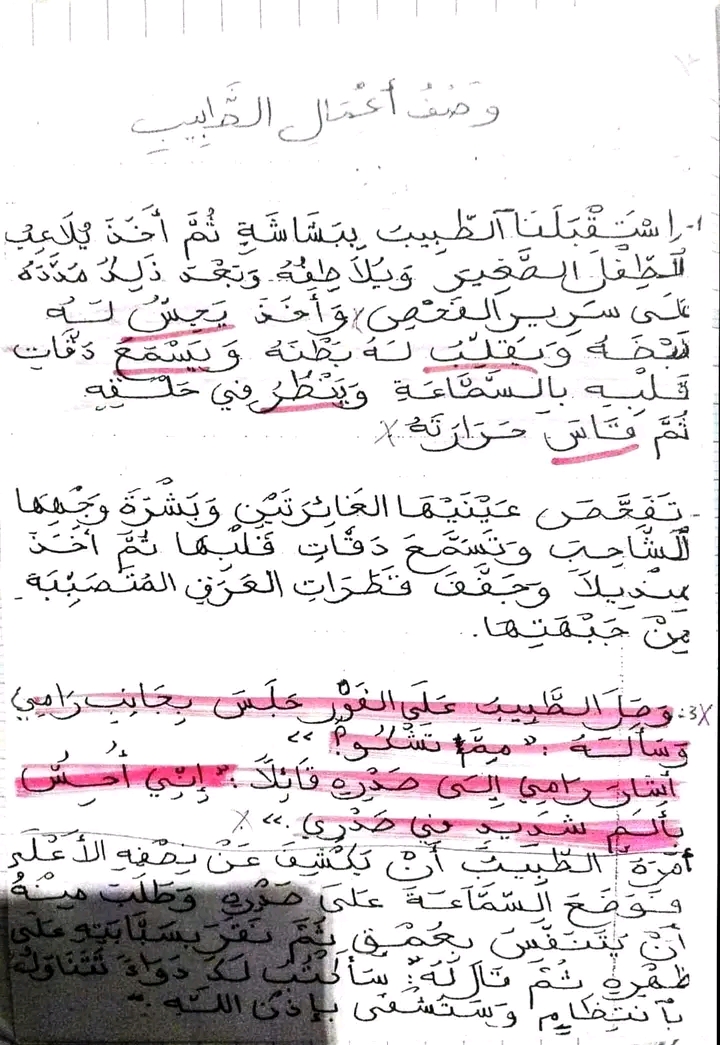 وَصْفُ أَعْمَالِ الطَّبِيبِ
1- اِسْتَقْبَلَنَا الطَّبِيبُ بِبَشَاشَةٍ ثُمَّ أَخَذَ يُلَاعِبُ
الطِّفْلَ الصَّغِيرَ وَيُلَاطِفُهُ وَبَعْدَ ذَلِكَ مَدَّدَهُ
عَلَى سَرِيرِ الفَحْصِ وَأَخَذَ يَجِسُّ لَهُ
نَبْضَهُ وَيُقَلِّبُ لَهُ بَطْنَهُ وَيَسْمَعُ دَقَّاتِ
قَلْبِهِ بِالسَّمَّاعَةِ وَيَنْظُرُ فِي حَلْقِهِ
ثُمَّ قَاسَ حَرَارَتَهُ
- تَفَحَّصَ عَيْنَيْهَا الغَائِرَتَيْنِ وَبَشْرَةَ وَجْهِهَا
الشَّاحِبَ وَتَسَمَّعَ دَقَّاتِ قَلْبِهَا ثُمَّ أَخَذَ
مِنْدِيلًا وَجَفَّفَ قَطَرَاتِ العَرَقِ المُتَصَبِّبَةَ
مِنْ جَبْهَتِهَا.
3- وَصَلَ الطَّبِيبُ عَلَى الفَوْرِ جَلَسَ بِجَانِبِ رَامِي
وَسَأَلَهُ : " مِمَّ تَشْكُو؟ "
أَشَارَ رَامِي إِلَى صَدْرِهِ قَائِلًا : " إِنِّي أُحِسُّ
بِأَلَمٍ شَدِيدٍ فِي صَدْرِي . "
أَمَرَهُ الطَّبِيبُ أَنْ يَكْشِفَ عَنْ نِصْفِهِ الأَعْلَى
فَوَضَعَ السَّمَّاعَةَ عَلَى صَدْرِهِ وَطَلَبَ مِنْهُ
أَنْ يَتَنَفَّسَ بِعُمْقٍ ثُمَّ نَقَرَ بِسَبَّابَتِهِ عَلَى
ظَهْرِهِ ثُمَّ قَالَ لَهُ : سَأَكْتُبُ لَكَ دَوَاءً تَتَنَاوَلُهُ
بِانْتِظَامٍ وَسَتُشْفَى بِإِذْنِ اللَّهِ . "